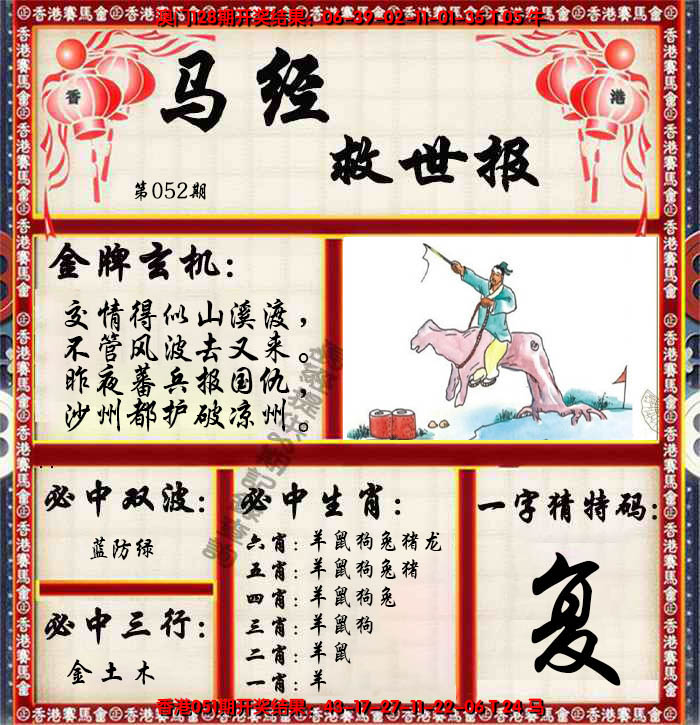 澳门128期开奖结果：06-39-02-11-01-35 T 05 牛
香港賽馬會 香港賽馬會 香港賽馬會
香
港
马经
救世报
第052期
金牌玄机：
交情得似山溪渡，
不管风波去又来。
昨夜蕃兵报国仇，
沙州都护破凉州。
必中双波：
蓝防绿
必中三行：
金土木
必中生肖：
六肖：羊鼠狗兔猪龙
五肖：羊鼠狗兔猪
四肖：羊鼠狗兔
三肖：羊鼠狗
二肖：羊鼠
一肖：羊
一字猜特码：
复
香港051期开奖结果：43-17-27-11-22-06 T 24 马